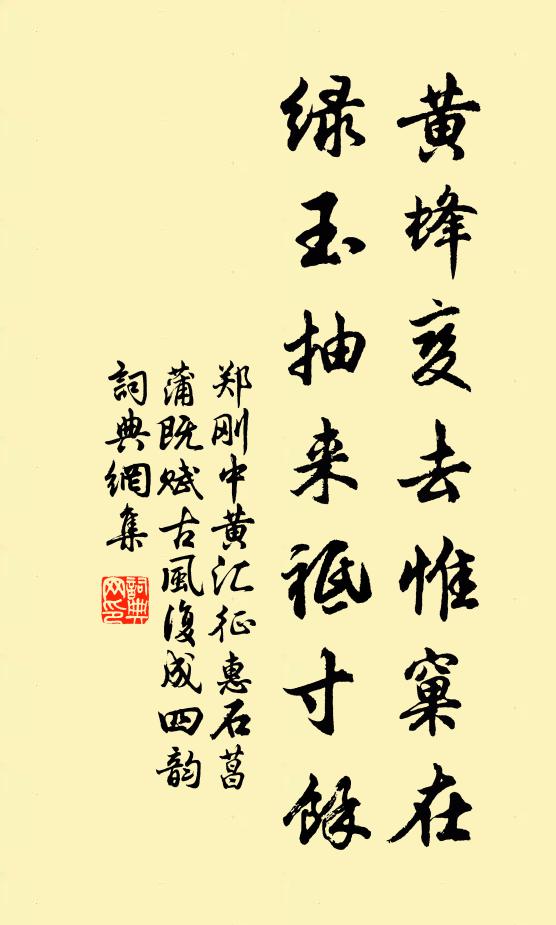 黄蜂变去惟窠在
绿玉抽来祗寸馀
郑刚中黄汇征惠石菖
蒲既赋古風復成四韵
詞典網集
詞典
网印